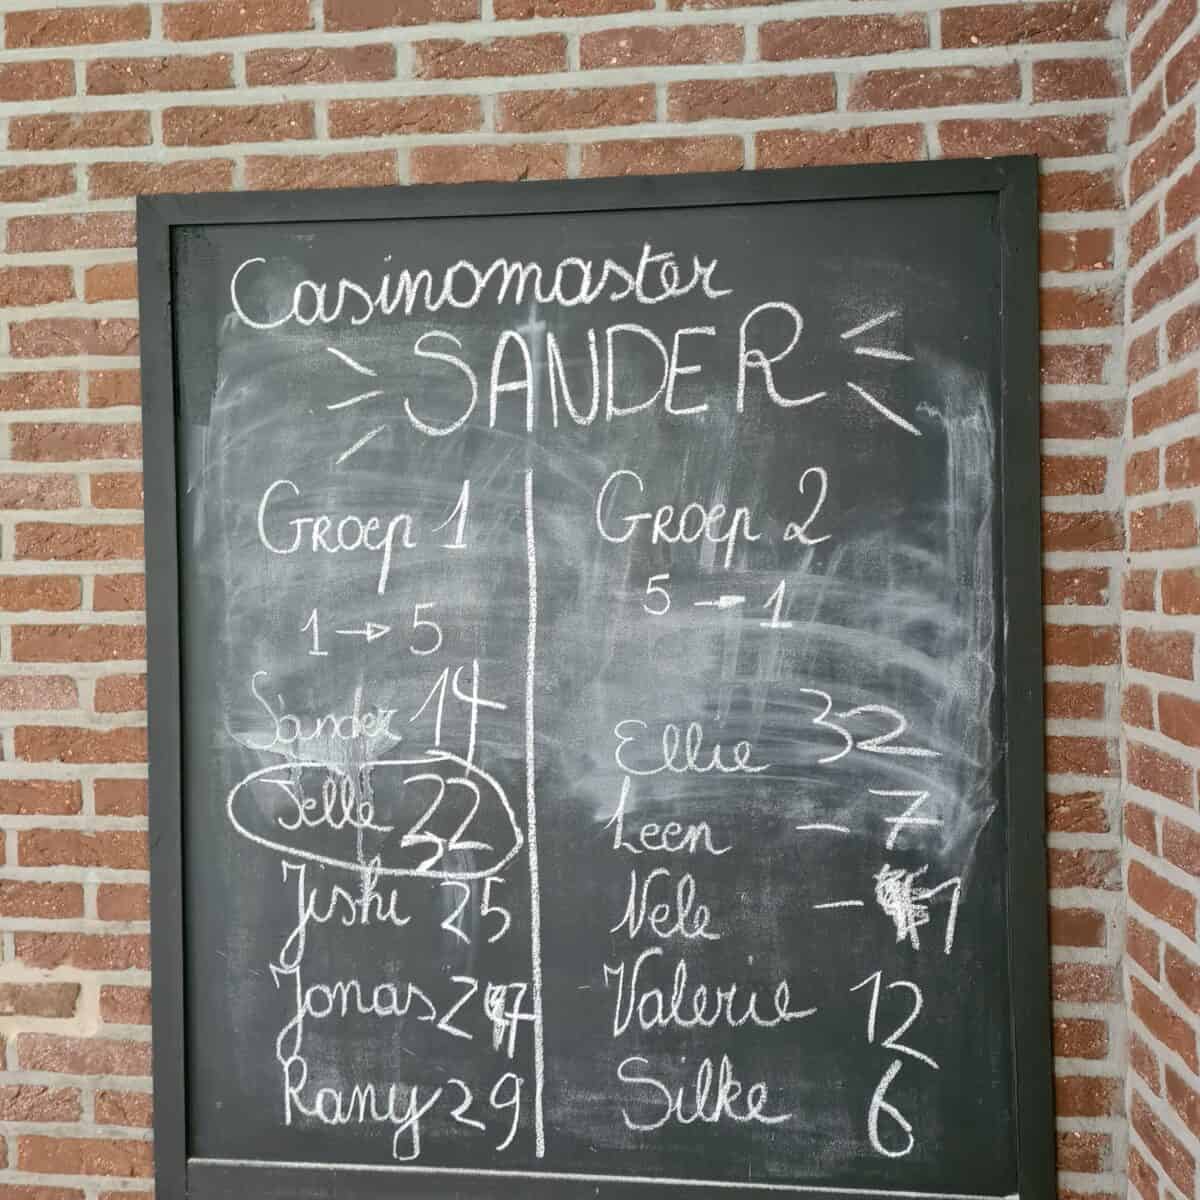 Casinomaster
SANDER
Groep 1
1 → 5
Sander 14
Jelle 22
Jishi 25
Jonas 27
Rany 29
Groep 2
5 → 1
Ellie 32
Leen - 7
Vele - 1
Valerie 12
Silke 6